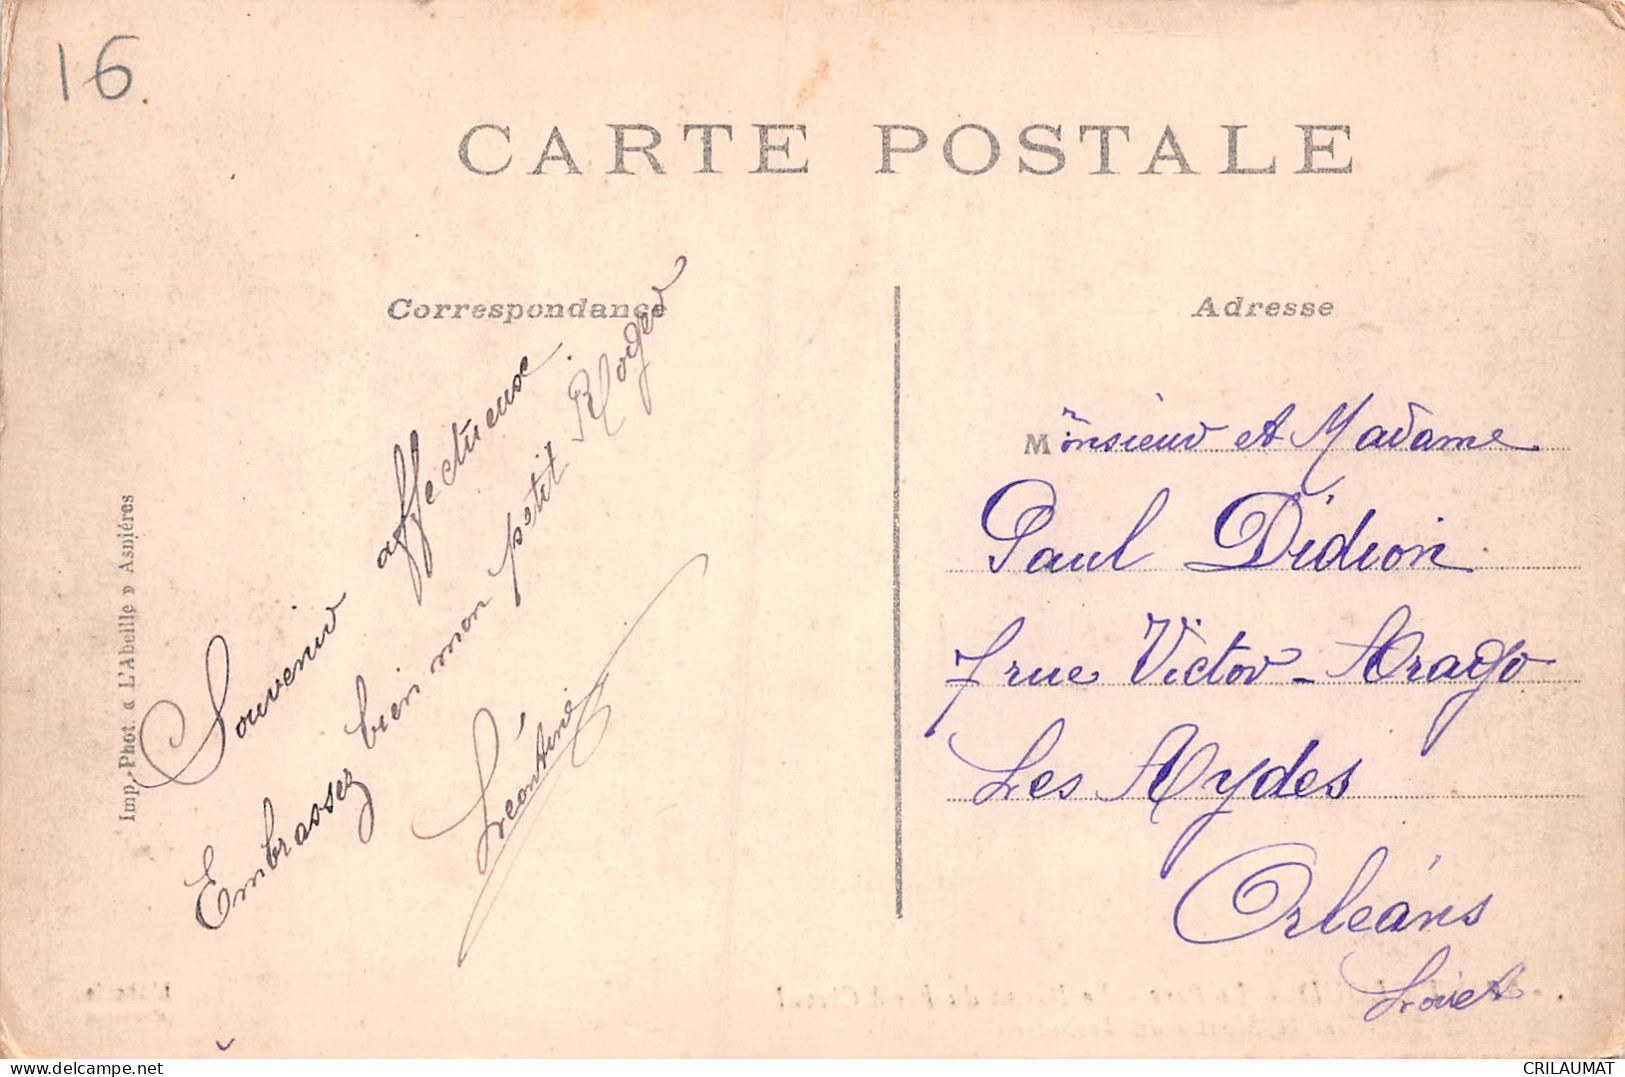 16.
CARTE POSTALE
Correspondance
Adresse
Souvenir affectueux.
Embrassez bien mon petit Roger
Léontine
Imp.-Phot. « L'Abeille » Asnières
Monsieur et Madame
Paul Didion
7 rue Victor-Arago
Les Aydes
Orléans
Loiret
delcampe.net
CRILAUMAT